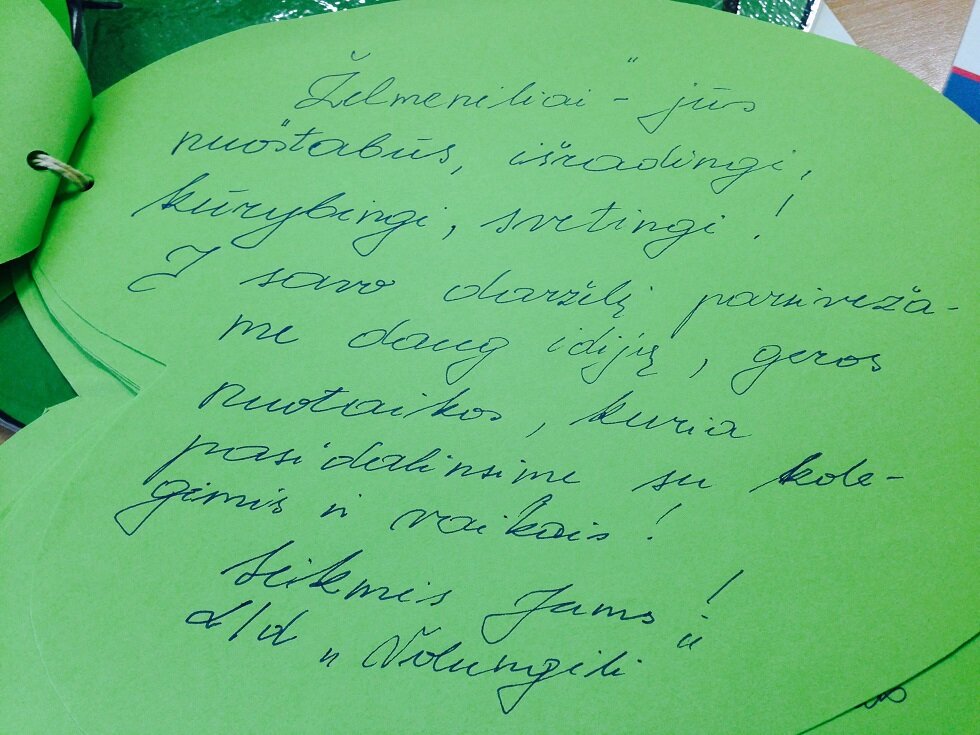 Želmenėliai" - jūs
nuostabūs, išradingi,
kūrybingi, svetingi!
Į savo darželį parsiveža-
me daug idėjų, geros
nuotaikos, kuria
pasidalinsime su kole-
gėmis ir vaikais!
Sėkmės Jums!
L/d „Volungėlė"